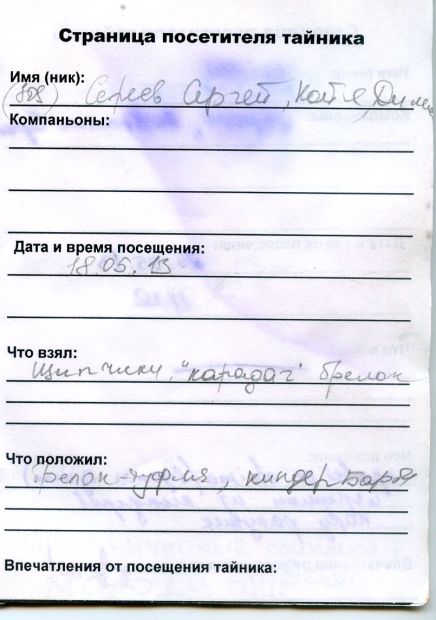 Страница посетителя тайника
Имя (ник):
Сергей, Катя
Компаньоны:
Дата и время посещения:
18.05.13
Что взял:
Щипчики, "карадаг" брелок
Что положил:
Брелок-туфля, киндер Барби
Впечатления от посещения тайника: